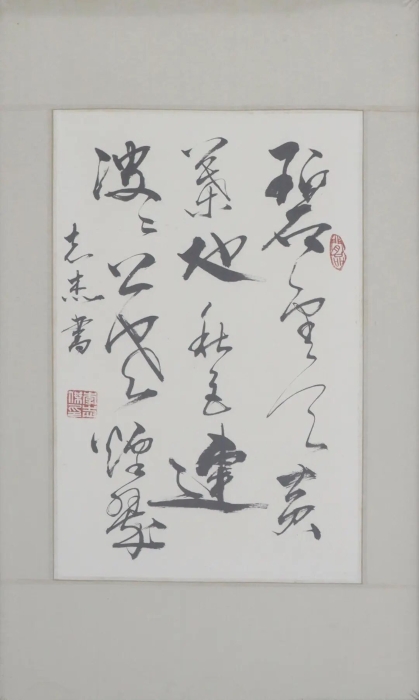 碧雲天黄
葉地秋色連
波〻上寒煙翠
志杰書